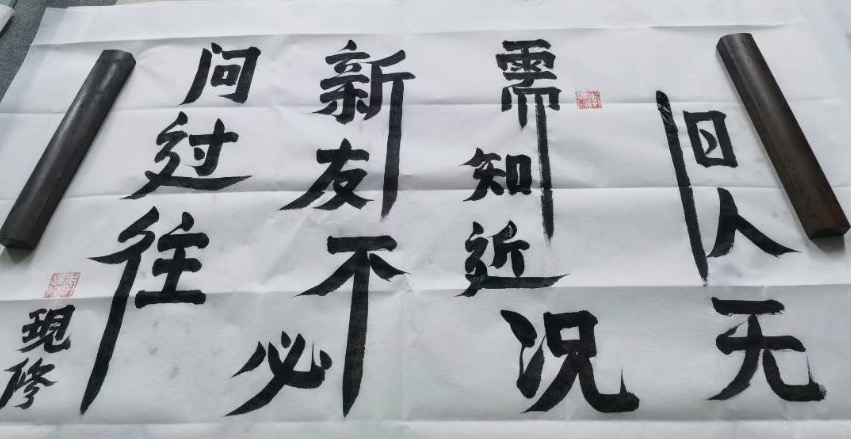 旧人无
需知近况
新友不必
问过往
现修